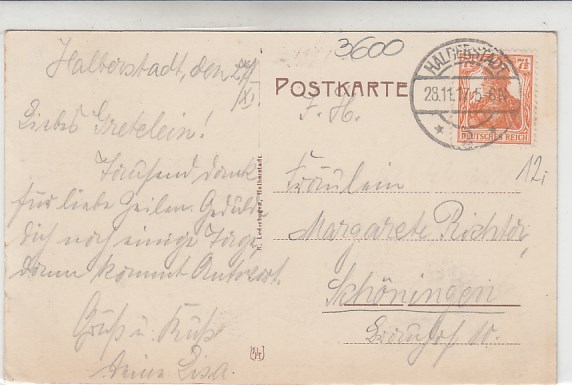 Halberstadt, den 27/XI.
Liebes Gretelein!
Tausend Dank
für liebe Zeilen. Gedulde
dich noch einige Tage,
dann kommt Antwort.
Gruß u. Kuß
deine Lisa.
3600
POSTKARTE
HALBERSTADT
28.11.17.5-6N.
7½
DEUTSCHES REICH
12,
F. H.
Fräulein
Margarete Richter,
Schöningen
R. Lederbogen, Halberstadt.